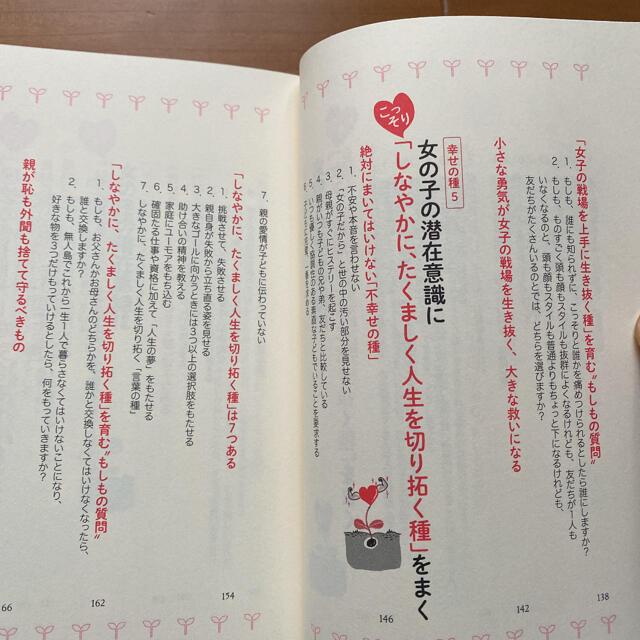 「女子の戦場を上手に生き抜く種」を育む"もしもの質問"
1、もしも、誰にも知られずに、こっそりと誰かを痛めつけられるとしたら誰にしますか?
2、もしも、ものすごく頭も顔もスタイルも抜群によくなるけれども、友だちが1人も
いなくなるのと、頭も顔もスタイルも普通よりもちょっと下になるけれども、
友だちがたくさんいるのとでは、どちらを選びますか?
138
小さな勇気が女子の戦場を生き抜く、大きな救いになる
142
幸せの種 5
こっそり
女の子の潜在意識に
「しなやかに、たくましく人生を切り拓く種」をまく
146
絶対にまいてはいけない「不幸せの種」
1、不安や本音を言わせない
2、「女の子だから」と世の中の汚い部分を見せない
3、母親がすぐにヒステリーを起こす
4、親がいつも子どもの兄や弟、友だちと比較している
5、いつも正しく発展性のある素直な子どもでいることを要求する
7、親の愛情が子どもに伝わっていない
「しなやかに、たくましく人生を切り拓く種」は7つある
154
1、挑戦させて、失敗させる
2、親自身が失敗から立ち直る姿を見せる
3、大きなゴールに向かうときには3つ以上の選択肢をもたせる
4、助け合いの精神を教える
5、家庭にユーモアをもち込む
6、確固たる仕事や資格に加えて「人生の夢」をもたせる
7、しなやかに、たくましく人生を切り拓く、"言葉の種"
「しなやかに、たくましく人生を切り拓く種」を育む"もしもの質問"
162
1、もしも、お父さんかお母さんのどちらかを、誰かと交換しなくてはいけなくなったら、
誰と交換しますか?
2、もしも、無人島でこれから一生1人で暮らさなくてはいけないことになり、
好きな物を3つだけもっていけるとしたら、何をもっていきますか?
親が恥も外聞も捨てて守るべきもの
66